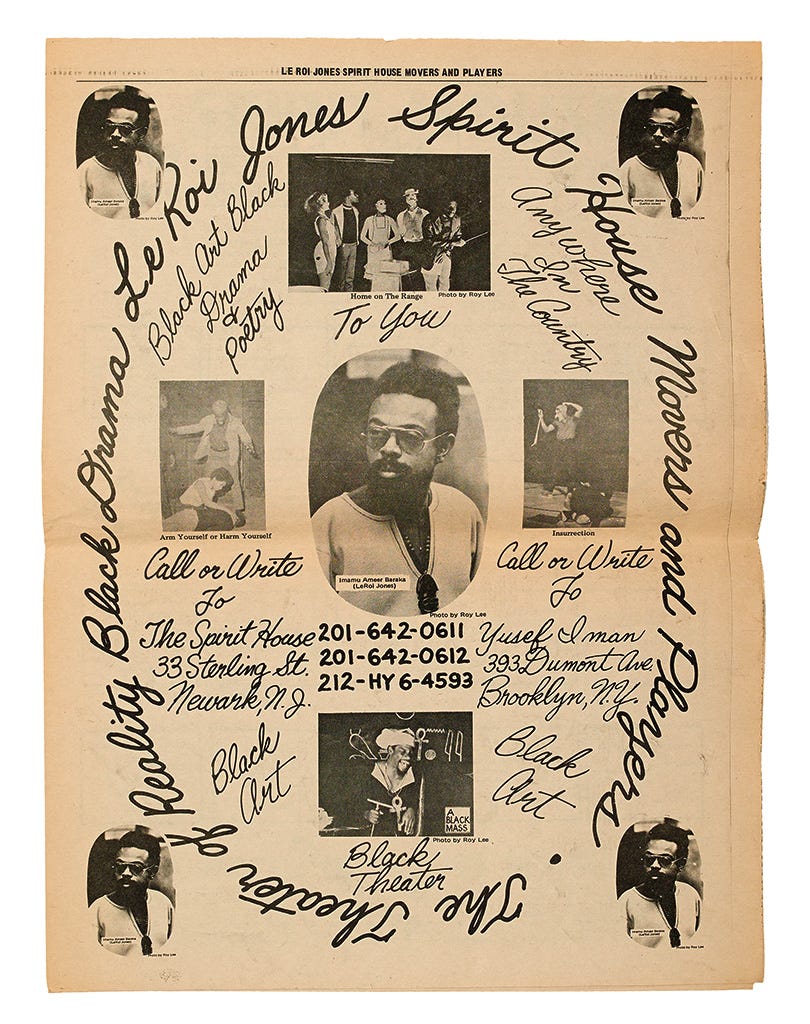 LE ROI JONES SPIRIT HOUSE MOVERS AND PLAYERS
The Theater of Reality Black Drama Le Roi Jones Spirit House Movers and Players.
Imamu Ameer Baraka
(LeRoi Jones)
Photo by Roy Lee
Imamu Ameer Baraka
(LeRoi Jones)
Photo by Roy Lee
Black Art Black
Drama
&
Poetry
Home on The Range
Photo by Roy Lee
Anywhere
In
The Country
To You
Arm Yourself or Harm Yourself
Imamu Ameer Baraka
(LeRoi Jones)
Photo by Roy Lee
Insurrection
Call or Write
To
The Spirit House
33 Sterling St.
Newark, N.J.
201-642-0611
201-642-0612
212-HY 6-4593
Call or Write
To
Yusef Iman
393 Dumont Ave.
Brooklyn, N.Y.
Black
Art
44
A
BLACK
MASS
Photo by Roy Lee
Black
Theater
Black
Art
Imamu Ameer Baraka
(LeRoi Jones)
Photo by Roy Lee
Imamu Ameer Baraka
(LeRoi Jones)
Photo by Roy Lee